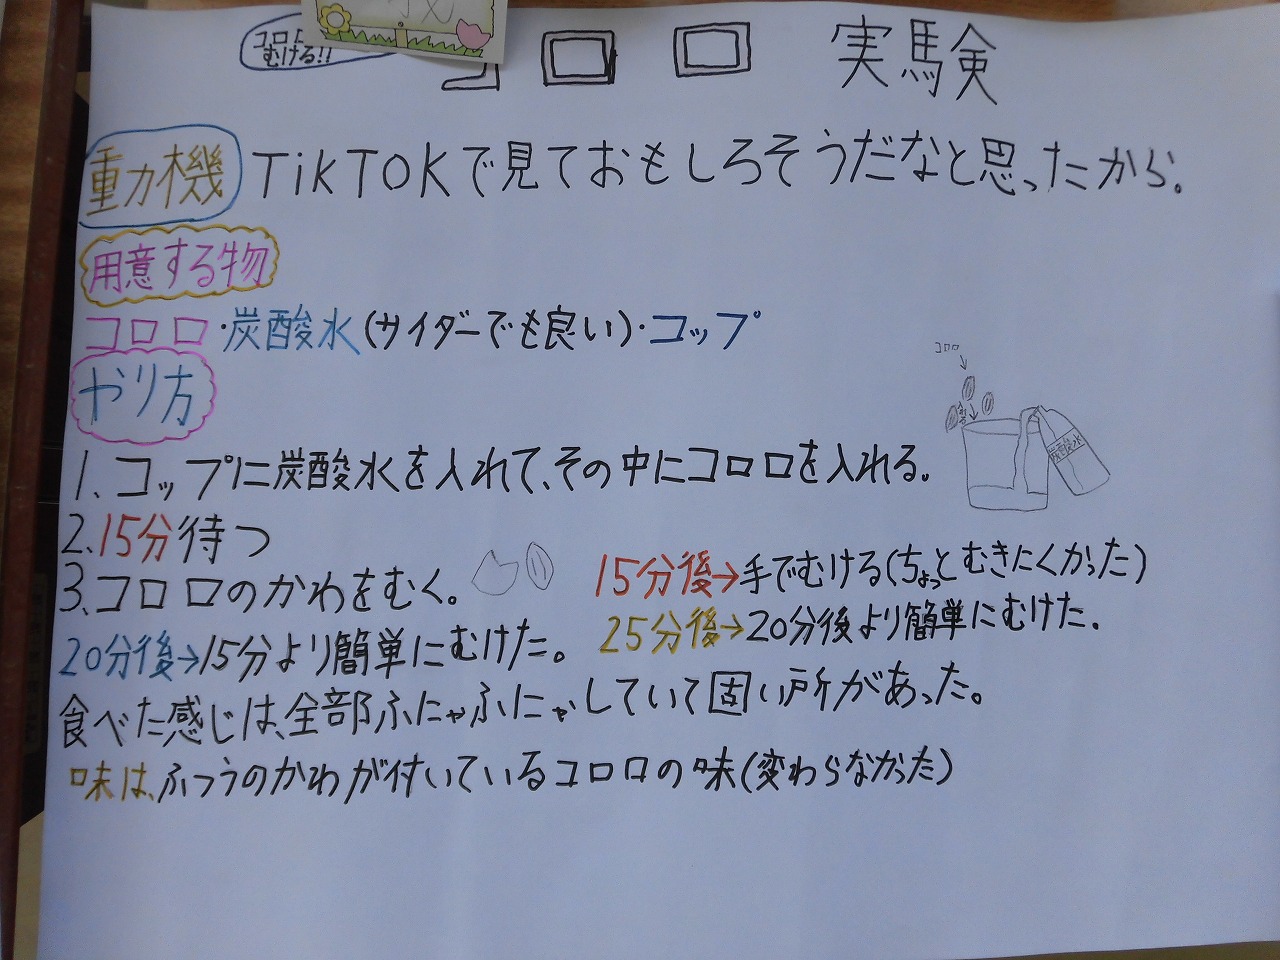 むける!!
コロロ 実験
動機 TikTOKで見ておもしろそうだなと思ったから。
用意する物
コロロ・炭酸水(サイダーでも良い)・コップ
やり方
コロロ
炭酸水
1、コップに炭酸水を入れて、その中にコロロを入れる。
2、15分待つ
3、コロロのかわをむく。
15分後→手でむける(ちょっとむきにくかった)
20分後→15分より簡単にむけた。
25分後→20分後より簡単にむけた.
食べた感じは、全部ふにゃふにゃしていて固い所があった。
味は、ふつうのかわが付いているコロロの味(変わらなかった)